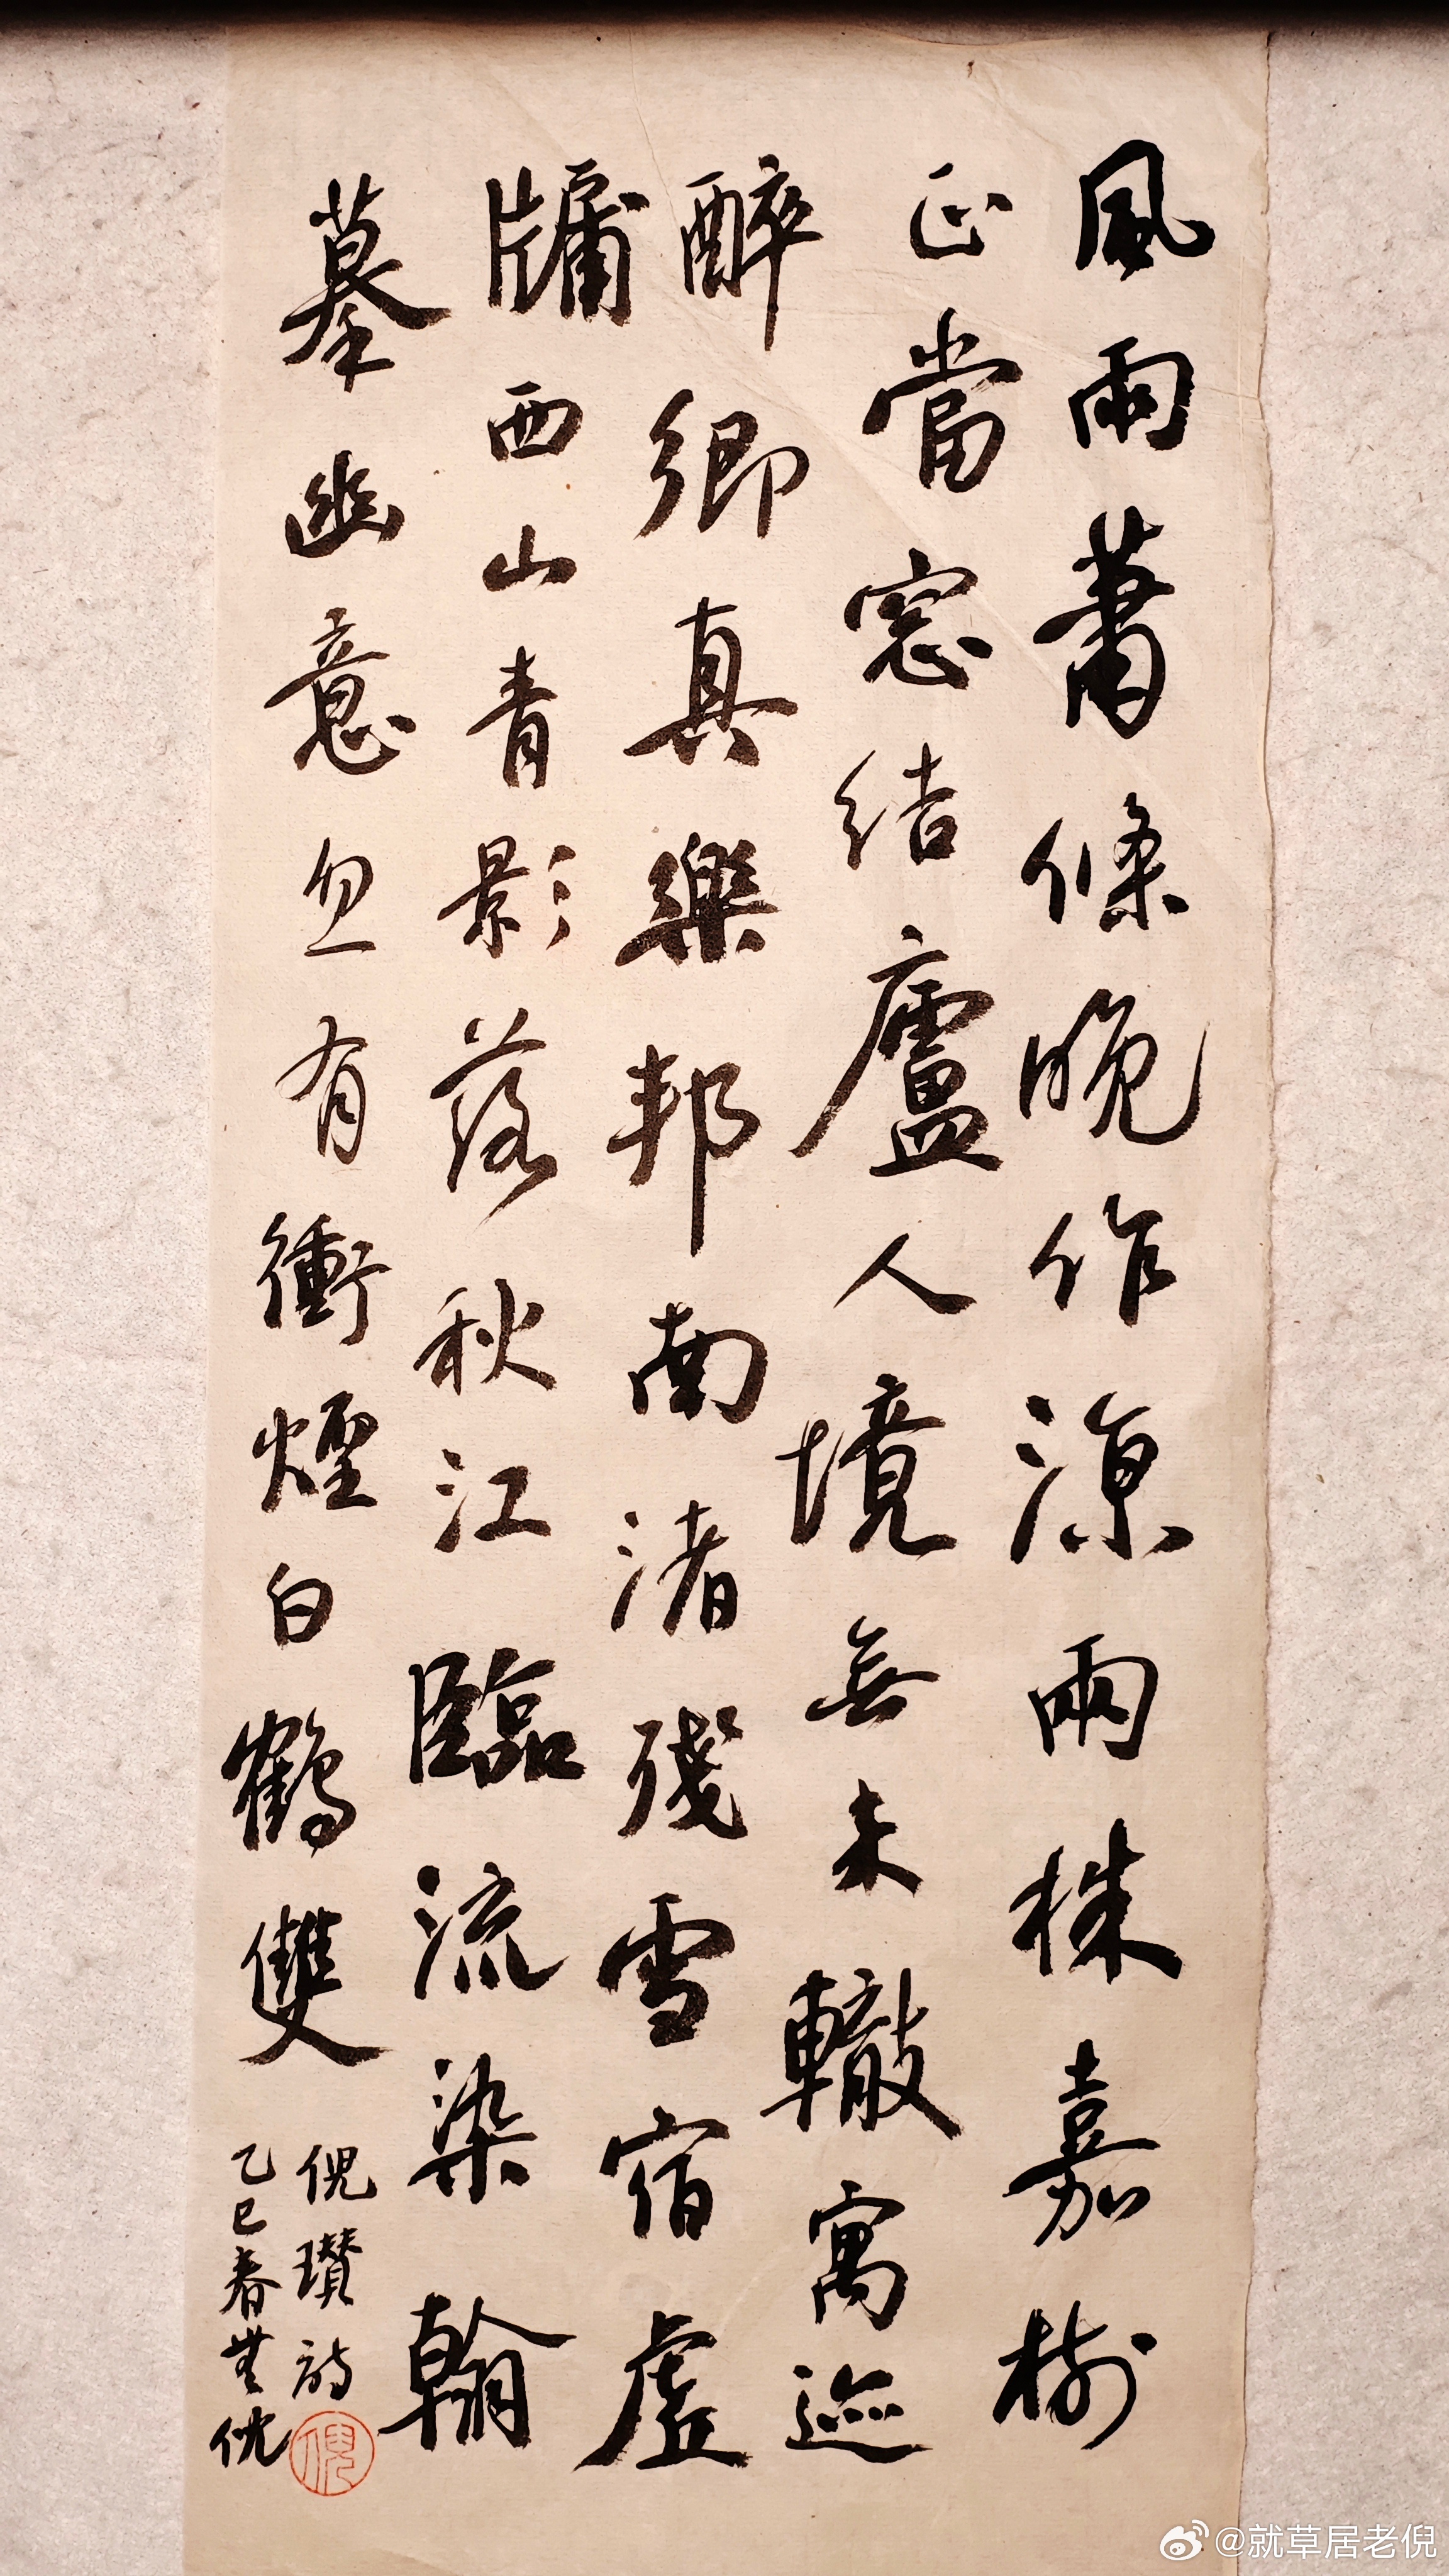 風雨蕭條晚作涼兩株嘉樹
正當窓結廬人境無來轍寓迹
醉鄉真樂邦南渚殘雪宿虛
牖西山青影落秋江臨流染翰
摹幽意忽有衝煙白鶴雙
倪瓚詩
乙巳春
倪
@就草居老倪